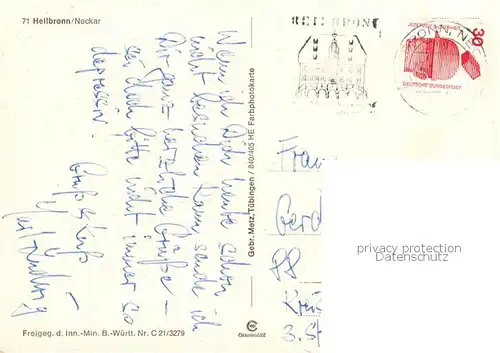 71 Heilbronn/Neckar
Wenn ich Dich heute schon
nicht besuchen kann, sende ich
Dir ganz herzliche Grüße –
sei doch bitte nicht immer so
depressiv.
Gruß & Kuß
Freigeg. d. Inn.-Min. B.-Württ. Nr. C 21/3279
Gebr. Metz, Tübingen / 840/405 HE Farbphotokarte
CHROMOLUXE
HEILBRONN
30
DEUTSCHE BUNDESPOST
Frau
Gerd
88
3. St
privacy protection
Datenschutz